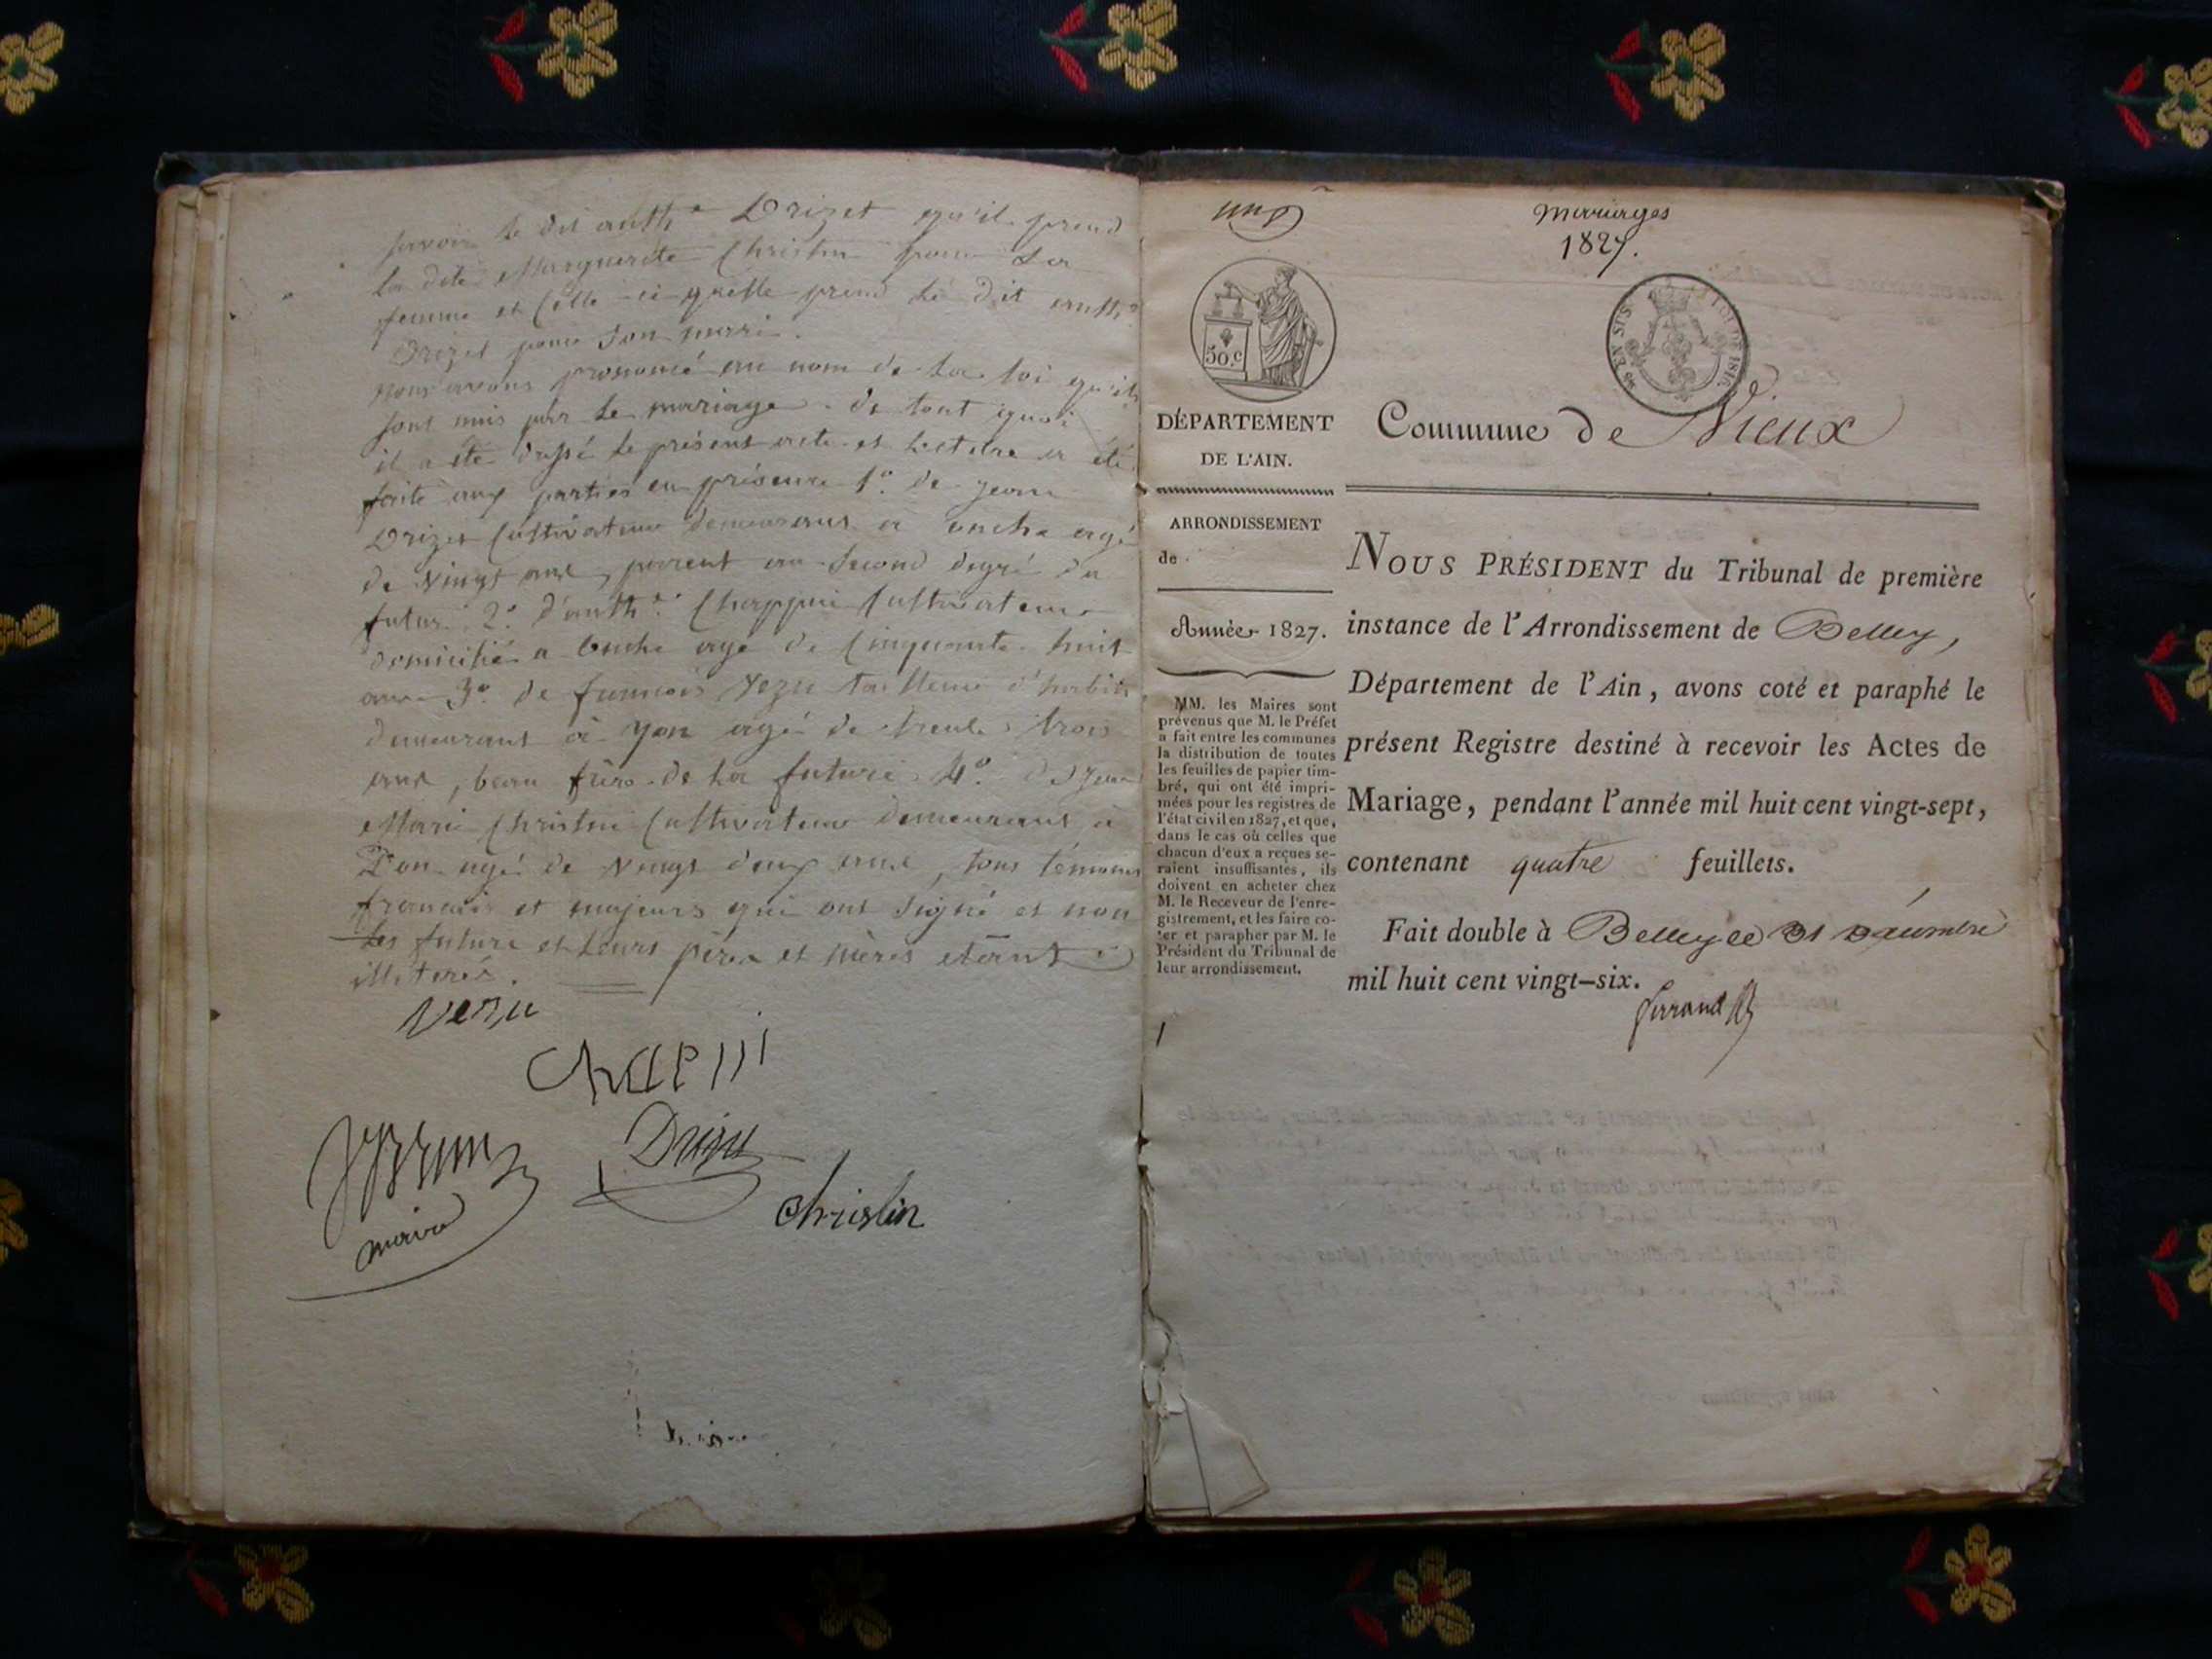 savoir le dit anthe Drizet qu'il prend
la dite Marguerite Christin pour sa
femme et celle-ci qu'elle prend le dit anthe
Drizet pour son mari.
nous avons prononcé au nom de la loi qu'ils
sont unis par le mariage. de tout quoi
il a été dressé le présent acte et lecture a été
faite aux parties en présence 1o. de jean
Drizet Cultivateur demeurant à age
de vingt ans, parent au second degré du
futur. 2o. d'anthe. Chappuis Cultivateur
domicilié a agé de Cinquante huit
ans 3o. de francois Vezu tailleur d'habits
demeurant à yon agé de trente trois
ans, beau frère de la future. 4o. de Jean
Marie Christin Cultivateur demeurant à
yon agé de vingt deux ans, tous témoins
francais et majeurs qui ont signé et non
les futurs et leurs pères et mères etant
illiterés.
Vezu
Chapiii
Drizet
maire
Christin
un
Mariages
1827.
50.c
EN SUS LOI DE 1816.
DÉPARTEMENT
DE L'AIN.
Commune de Vieux
ARRONDISSEMENT
de
Année 1827.
MM. les Maires sont
prévenus que M. le Préfet
a fait entre les communes
la distribution de toutes
les feuilles de papier tim-
bré, qui ont été impri-
mées pour les registres de
l'état civil en 1827, et que,
dans le cas où celles que
chacun d'eux a reçues se-
raient insuffisantes, ils
doivent en acheter chez
M. le Receveur de l'enre-
gistrement, et les faire co-
ter et parapher par M. le
Président du Tribunal de
leur arrondissement.
NOUS PRÉSIDENT du Tribunal de première
instance de l'Arrondissement de Belley,
Département de l'Ain, avons coté et paraphé le
présent Registre destiné à recevoir les Actes de
Mariage, pendant l'année mil huit cent vingt-sept,
contenant quatre feuillets.
Fait double à Belley le 31 Décembre
mil huit cent vingt-six.